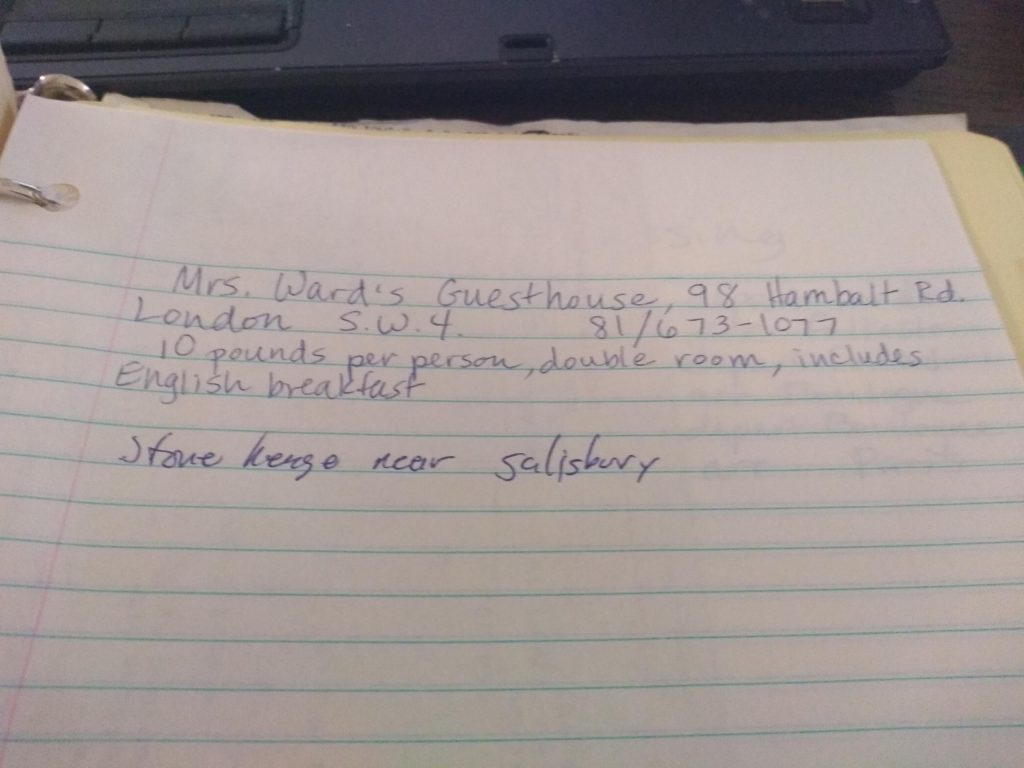 Mrs. Ward's Guesthouse, 98 Hambalt Rd.
London S.W.4. 81/673-1077
10 pounds per person, double room, includes
English breakfast
Stone henge near Salisbury